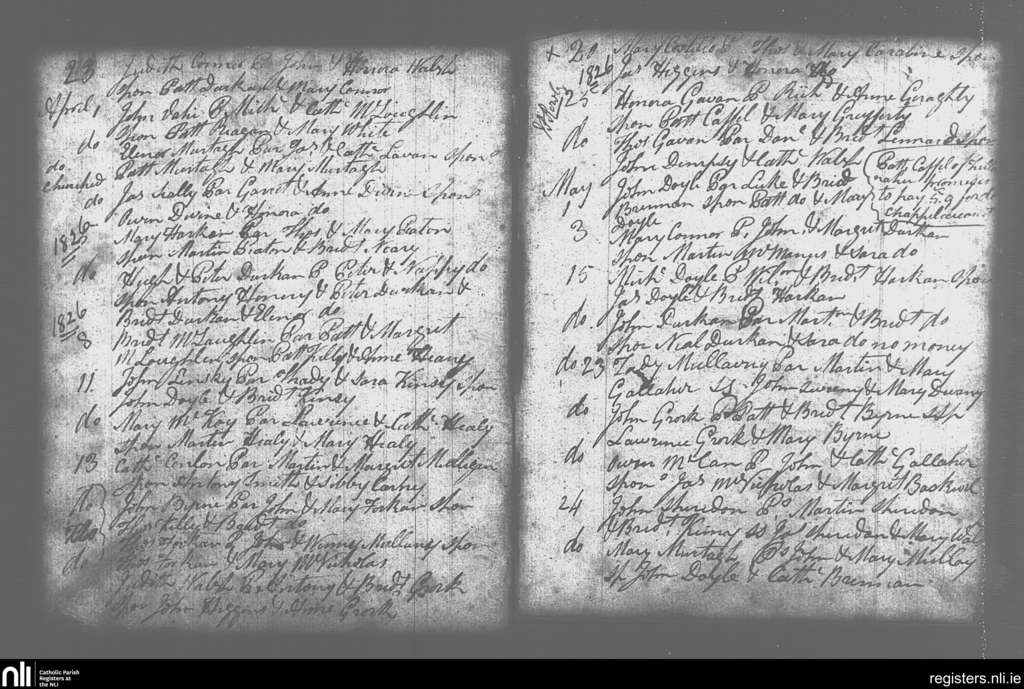 23 Judith Connor P. John & Honora Walsh
Spon Patt Durkan & Mary Connor
April 1 John Vahi P. Mich. & Cath. McLoughlin
do Spon Patt Reagan & Mary White
do Elenor Murtagh Par Jas. & Cath. Lavan Spon
churched Patt Murtagh & Mary Murtagh
do Jas Kelly Par Garret & Anne Divine Spon
Owen Divine & Honora do
1826 Mary Harkan Par Thos & Mary Beaton
Spon Martin Beaton & Bridt. Neary
do Hugh & Peter Durkan P Peter & Nappy do
Spon Antony Henery & Peter Durkan &
Bridt Durkan & Elenor do
1826
8 Bridt McLaughlin Par Patt & Margret
McLoughlin Spon Patt Jilly & Anne Heany
11 John Linsky Par Thady & Sara Kinsey Spon
John Doyle & Bridt Kinsey
do Mary Mc Kay Par Lawrence & Cath. Healy
Spon Martin Healy & Mary Healy
13 Cath. Conlon Par Martin & Margrit Milligan
Spon Antony Smith & Sibby Carney
do John Byrne Par John & Mary Forkan Spon
Thos Kelly & Bridt do
do Thos Forkan P. John & Winny Mullany Spon
Thos Forkan & Mary McNicholas
Judith Walsh P Antony & Bridt. Gork
Spon John Higgins & Anne Grork
x 20 Mary Costilo P. Thos & Mary Caroline Spon
1826 Jas Higgins & Honora
25 Honora Gavan P. Rich. & Anne Geraghty
Spon Patt Cassel & Mary Grafferty
do Thos Gavan Par Dan. & Bridt Lennard Spo
John Dempsy & Cath. Walsh
Patt Cassel of
promises
to pay 5.9 for
May John Doyle Par Luke & Brid
1 Brennan Spon Patt do & Mary
Doyle
3 Mary Connor P. John & Margret Durkan
Spon Martin McManus & Sara do
15 Mich. Doyle P. Wilm & Bridt Harkan Spon
Jas Doyle & Bridt Harkan
do John Durkan Par Mart. & Bridt do
Spon Neal Durkan & Sara do no money
do 23 Mullavny Par Martin & Mary
Gallaher SS John Sweeny & Mary Sweny
do John Grork P Patt & Bridt Byrne SSp
Lawrence Grork & Mary Byrne
do Owen McCan P. John & Cath. Gallaher
Spon Jas McNicholas & Margret
24 John Sheridon P. Martin Sheridon
& Bridt Kinny SS Jas Sheridan & Mary
do Mary Murtagh P. John & Mary Mullay
Sp John Doyle & Cath. Brennan
nli
Catholic Parish
Registers at
the NLI
registers.nli.ie